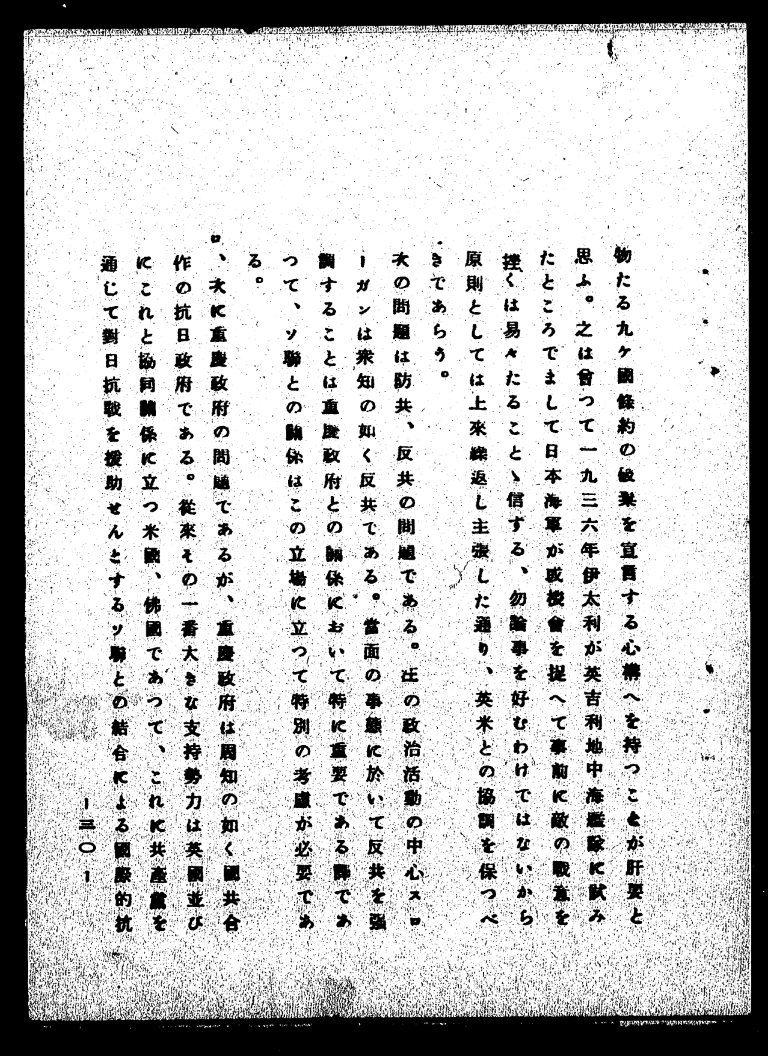 物たる九ケ國條約の破棄を宣言する心構へを持つことが肝要と
思ふ。之は曾つて一九三六年伊太利が英吉利地中海艦隊に試み
たところでまして日本海軍が或機會を捉へて事前に敵の戰意を
挫くは易々たることゝ信する、勿論事を好むわけではないから
原則としては上來繰返し主張した通り、英米との協調を保つべ
きであらう。
次の問題は防共、反共の問題である。汪の政治活動の中心スロ
ーガンは衆知の如く反共である。當面の事態に於いて反共を强
調することは重慶政府との關係において特に重要である譯であ
つて、ソ聯との關係はこの立場に立つて特別の考慮が必要であ
る。
ロ、次に重慶政府の問題であるが、重慶政府は周知の如く國共合
作の抗日政府である。從來その一番大きな支持勢力は英國並び
にこれと協同關係に立つ米國、佛國であつて、これに共產黨を
通じて對日抗戰を援助せんとするソ聯との結合による國際的抗
ー三〇ー